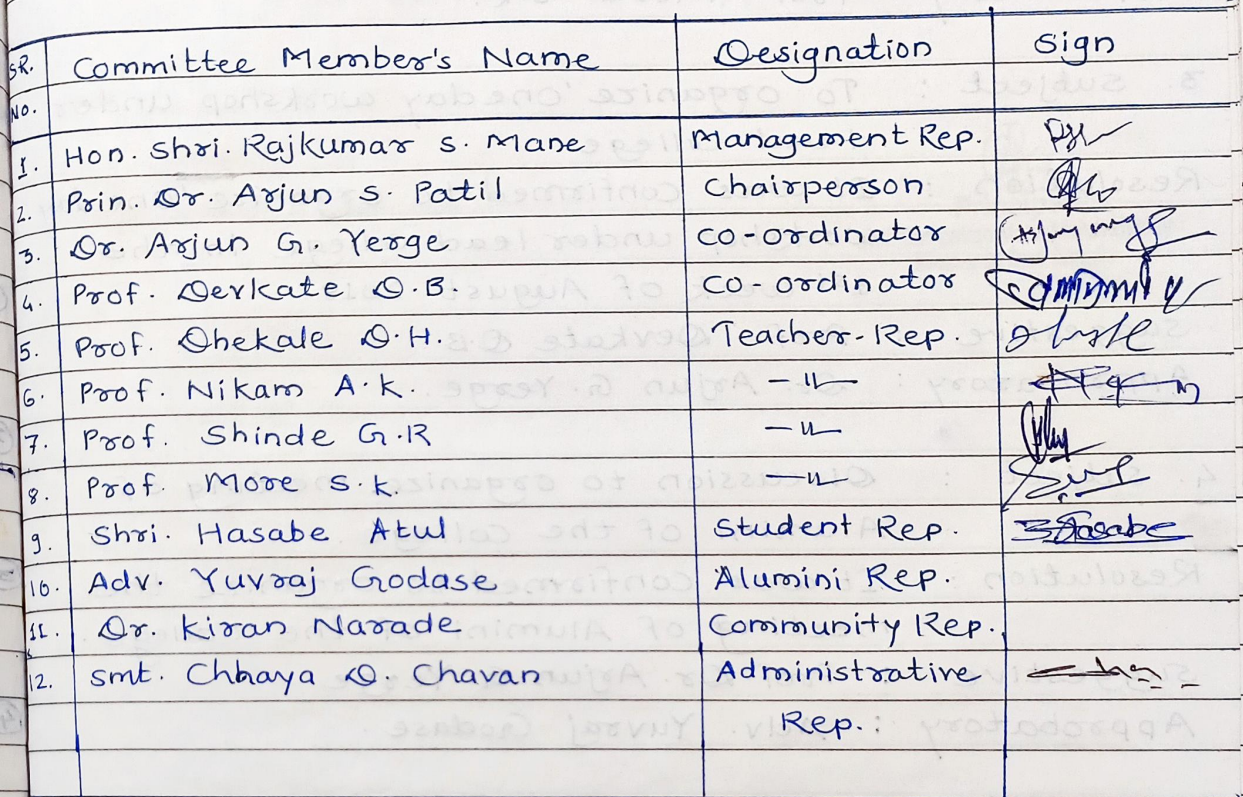 SR. Committee Member's Name Designation Sign
No.
1. Hon. Shri. Rajkumar S. Mane Management Rep.
2. Prin. Dr. Arjun S. Patil Chairperson
3. Dr. Arjun G. Yerge Co-ordinator
4. Prof. Devkate D.B. Co-ordinator
5. Prof. Dhekale D.H. Teacher-Rep.
6. Prof. Nikam A.K. -11-
7. Prof. Shinde G.R -11-
8. Prof. More S.K. -11-
9. Shri. Hasabe Atul Student Rep. Hasabe
10. Adv. Yuvraj Godase Alumini Rep.
11. Dr. Kiran Narade Community Rep.
12. Smt. Chhaya D. Chavan Administrative
Rep.